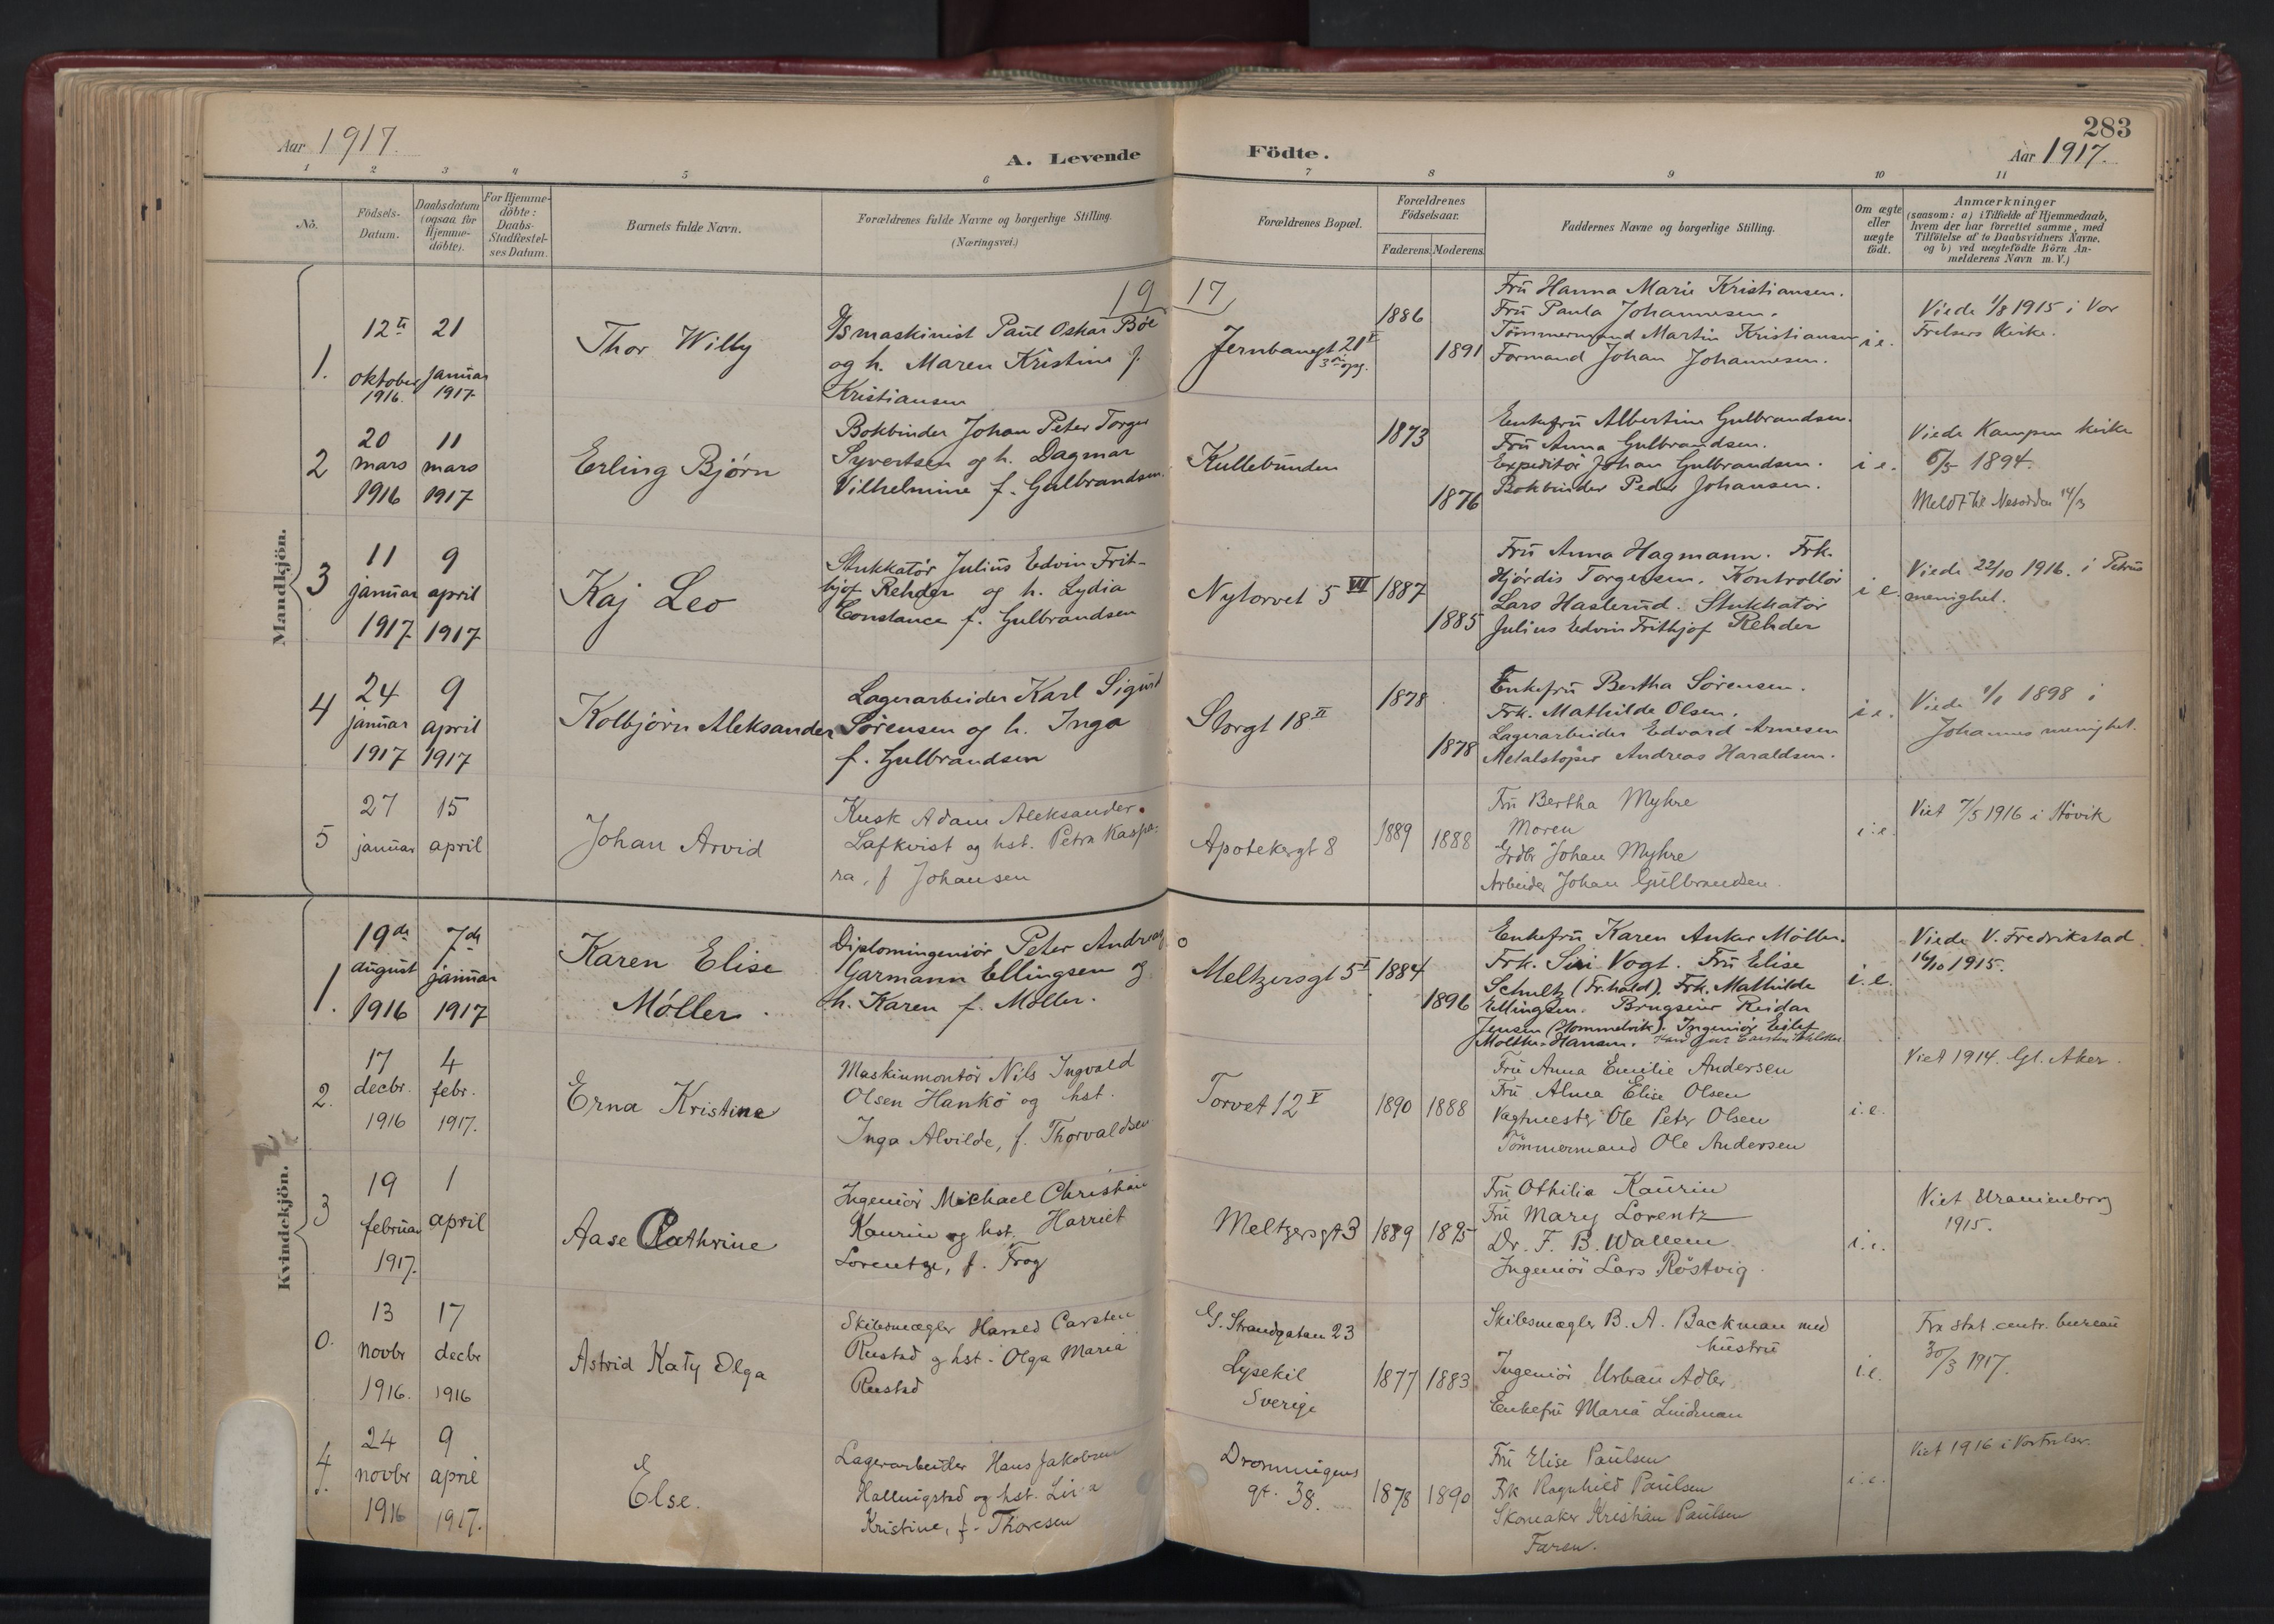 283
Aar 1917.
A. Levende
Födte.
Aar 1917.
1 2 3 4 5 6 7 8 9 10 11
No.
Födsels-
Datum.
Daabsdatum
(ogsaa for
Hjemme-
döbte).
For Hjemme-
döbte:
Daabs-
Stadfæstel-
ses Datum.
Barnets fulde Navn.
Forældrenes fulde Navne og borgerlige Stilling.
(Næringsvei.)
Forældrenes Bopæl.
Forældrenes
Födselsaar.
Faderens. Moderens.
Faddernes Navne og borgerlige Stilling.
Om ægte
eller
uægte
födt.
Anmærkninger
(saasom: a) i Tilfælde af Hjemmedaab,
hvem der har forrettet samme, med
Tilföielse af to Daabsvidners Navne,
og b) ved uægtefödte Börn An-
melderens Navn m. V.)
19 17
Mandkjön.
1.
12te
oktober
1916.
21
januar
1917.
Thor Willy
maskinist Paul Oskar Böe
og h. Maren Kristine f.
Kristiansen
Jernbanegt 21
1886
1891
Fru Hanna Marie Kristiansen.
Fru Paula Johannesen.
Tömmermand Martin Kristiansen
Formand Johan Johannesen.
i e.
Viede 1/8 1915 i Vor
Frelsers Kirke.
2
20
mars
1916
11
mars
1917
Erling Bjørn
Bokbinder Johan Peter Torger
Syvertsen og h. Dagmar
Vilhelmine f. Gulbrandsen.
Kullebunden
1873
1876
Enkefru Albertine Gulbrandsen.
Fru Anna Gulbrandsen.
Expeditör Johan Gulbrandsen.
Bokbinder Peder Johansen.
i e.
Viede Kampen kirke
6/5 1894.
Meldt til Nesodden 14/3
3
11
januar
1917
9
april
1917
Kaj Leo
Stukkatör Julius Edvin Frit-
hjof Rehder og h. Lydia
Constance f. Gulbrandsen
Nytorvet 5 VI
1887
1885
Fru Anna Hagmann. Frk.
Hjördis Torgersen. Kontrollör
Lars Haslerud. Stukkatör
Julius Edvin Frithjof Rehder
i e.
Viede 22/10 1916. i Petrus
menighet.
4
24
januar
1917
9
april
1917
Kolbjörn Aleksander
Lagerarbeider Karl Sigurd
Sörensen og h. Inga
f. Gulbrandsen
Storgt 18 II
1878
1878
Enkefru Bertha Sörensen.
Frk. Mathilde Olsen.
Lagerarbeider Edvard Arnesen
Metalstöper Andreas Haraldsen.
i e.
Viede 1/1 1898 i
Johannes menighet.
5
27
januar
15
april
Johan Arvid
Kusk Adam Aleksander
Lafkvist og hst. Petra Kaspa-
ra, f Johansen
Apotekergt 8
1889
1888
Fru Bertha Myhre
Moren
Grdbr Johan Myhre
Arbeider Johan Gulbrandsen.
i.e.
Viet 7/5 1916 i Hövik
Kvindekjön.
1.
19de
august
1916
7de
januar
1917
Karen Elise
Möller.
Diplomingeniör Peter Andreas
Garmann Ellingsen og
h. Karen f. Möller.
Meltzersgt 5 I
1884
1896
Enkefru Karen Anker Möller.
Frk. Siri Vogt. Fru Elise
Schultz (Fr.hald). Frk. Mathilde
Ellingsen. Brugseier Reidar
Jensen (Hommelvik). Ingeniör Eilif
Molthe-Hansen.
i.e.
Viede V. Fredrikstad
16/10 1915.
2.
17
decbr.
1916
4
febr.
1917.
Erna Kristine
Maskinmontör Nils Ingvald
Olsen Hankö og hst.
Inga Alvilde, f. Thorvaldsen
Torvet 12 V
1890
1888
Fru Anna Emilie Andersen
Fru Alma Elise Olsen
Vagtmester Ole Peter Olsen
Tömmermand Ole Andersen
i.e.
Viet 1914. Gl. Aker.
3
19
februar
1917.
1
april
Aase Cathrine
Ingeniör Michael Christian
Kaurin og hst. Harriet
Lorentze, f. Frog
Meltzersgt 3
1889
1895
Fru Othilia Kaurin
Fru Mary Lorentz
Dr. F. B. Wallem
Ingeniör Lars Röstvig.
i.e.
Viet Uranienborg
1915.
0.
13
novbr
1916.
17
decbr
1916
Astrid Katy Olga
Skibsmægler Harald Carsten
Rustad og hst. Olga Maria
Rustad
G. Strandgatan 23
Lysekil
Sverige
1877
1883
Skibsmægler B. A. Backman med
hustru
Ingeniör Urban Adler
Enkefru Maria Lindman
i.e.
Fra stat. centr. bureau
30/3 1917.
4.
24
novbr
1916
9
april
1917.
Else.
Lagerarbeider Hans Jakobsen
Hallingstad og hst. Lina
Kristine, f. Thoresen
Dronningens
gt. 38.
1878
1890
Fru Elise Paulsen
Frk Ragnhild Paulsen
Skomaker Kristian Paulsen
Faren.
i.e.
Viet 1916 i Vorfrelser.